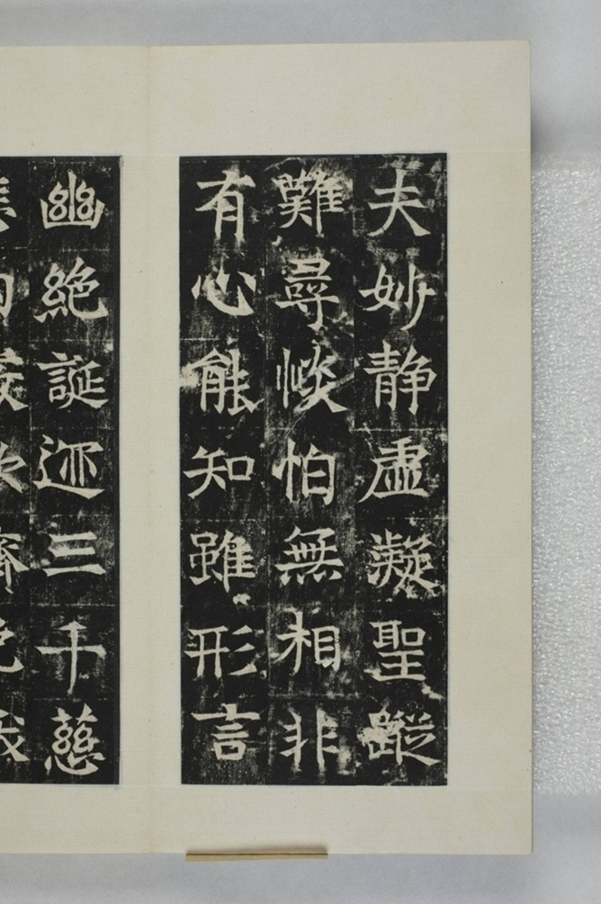 夫妙静虚凝聖蹤
難尋惔怕無相非
有心能知雖形言
幽絶誕迹三千慈